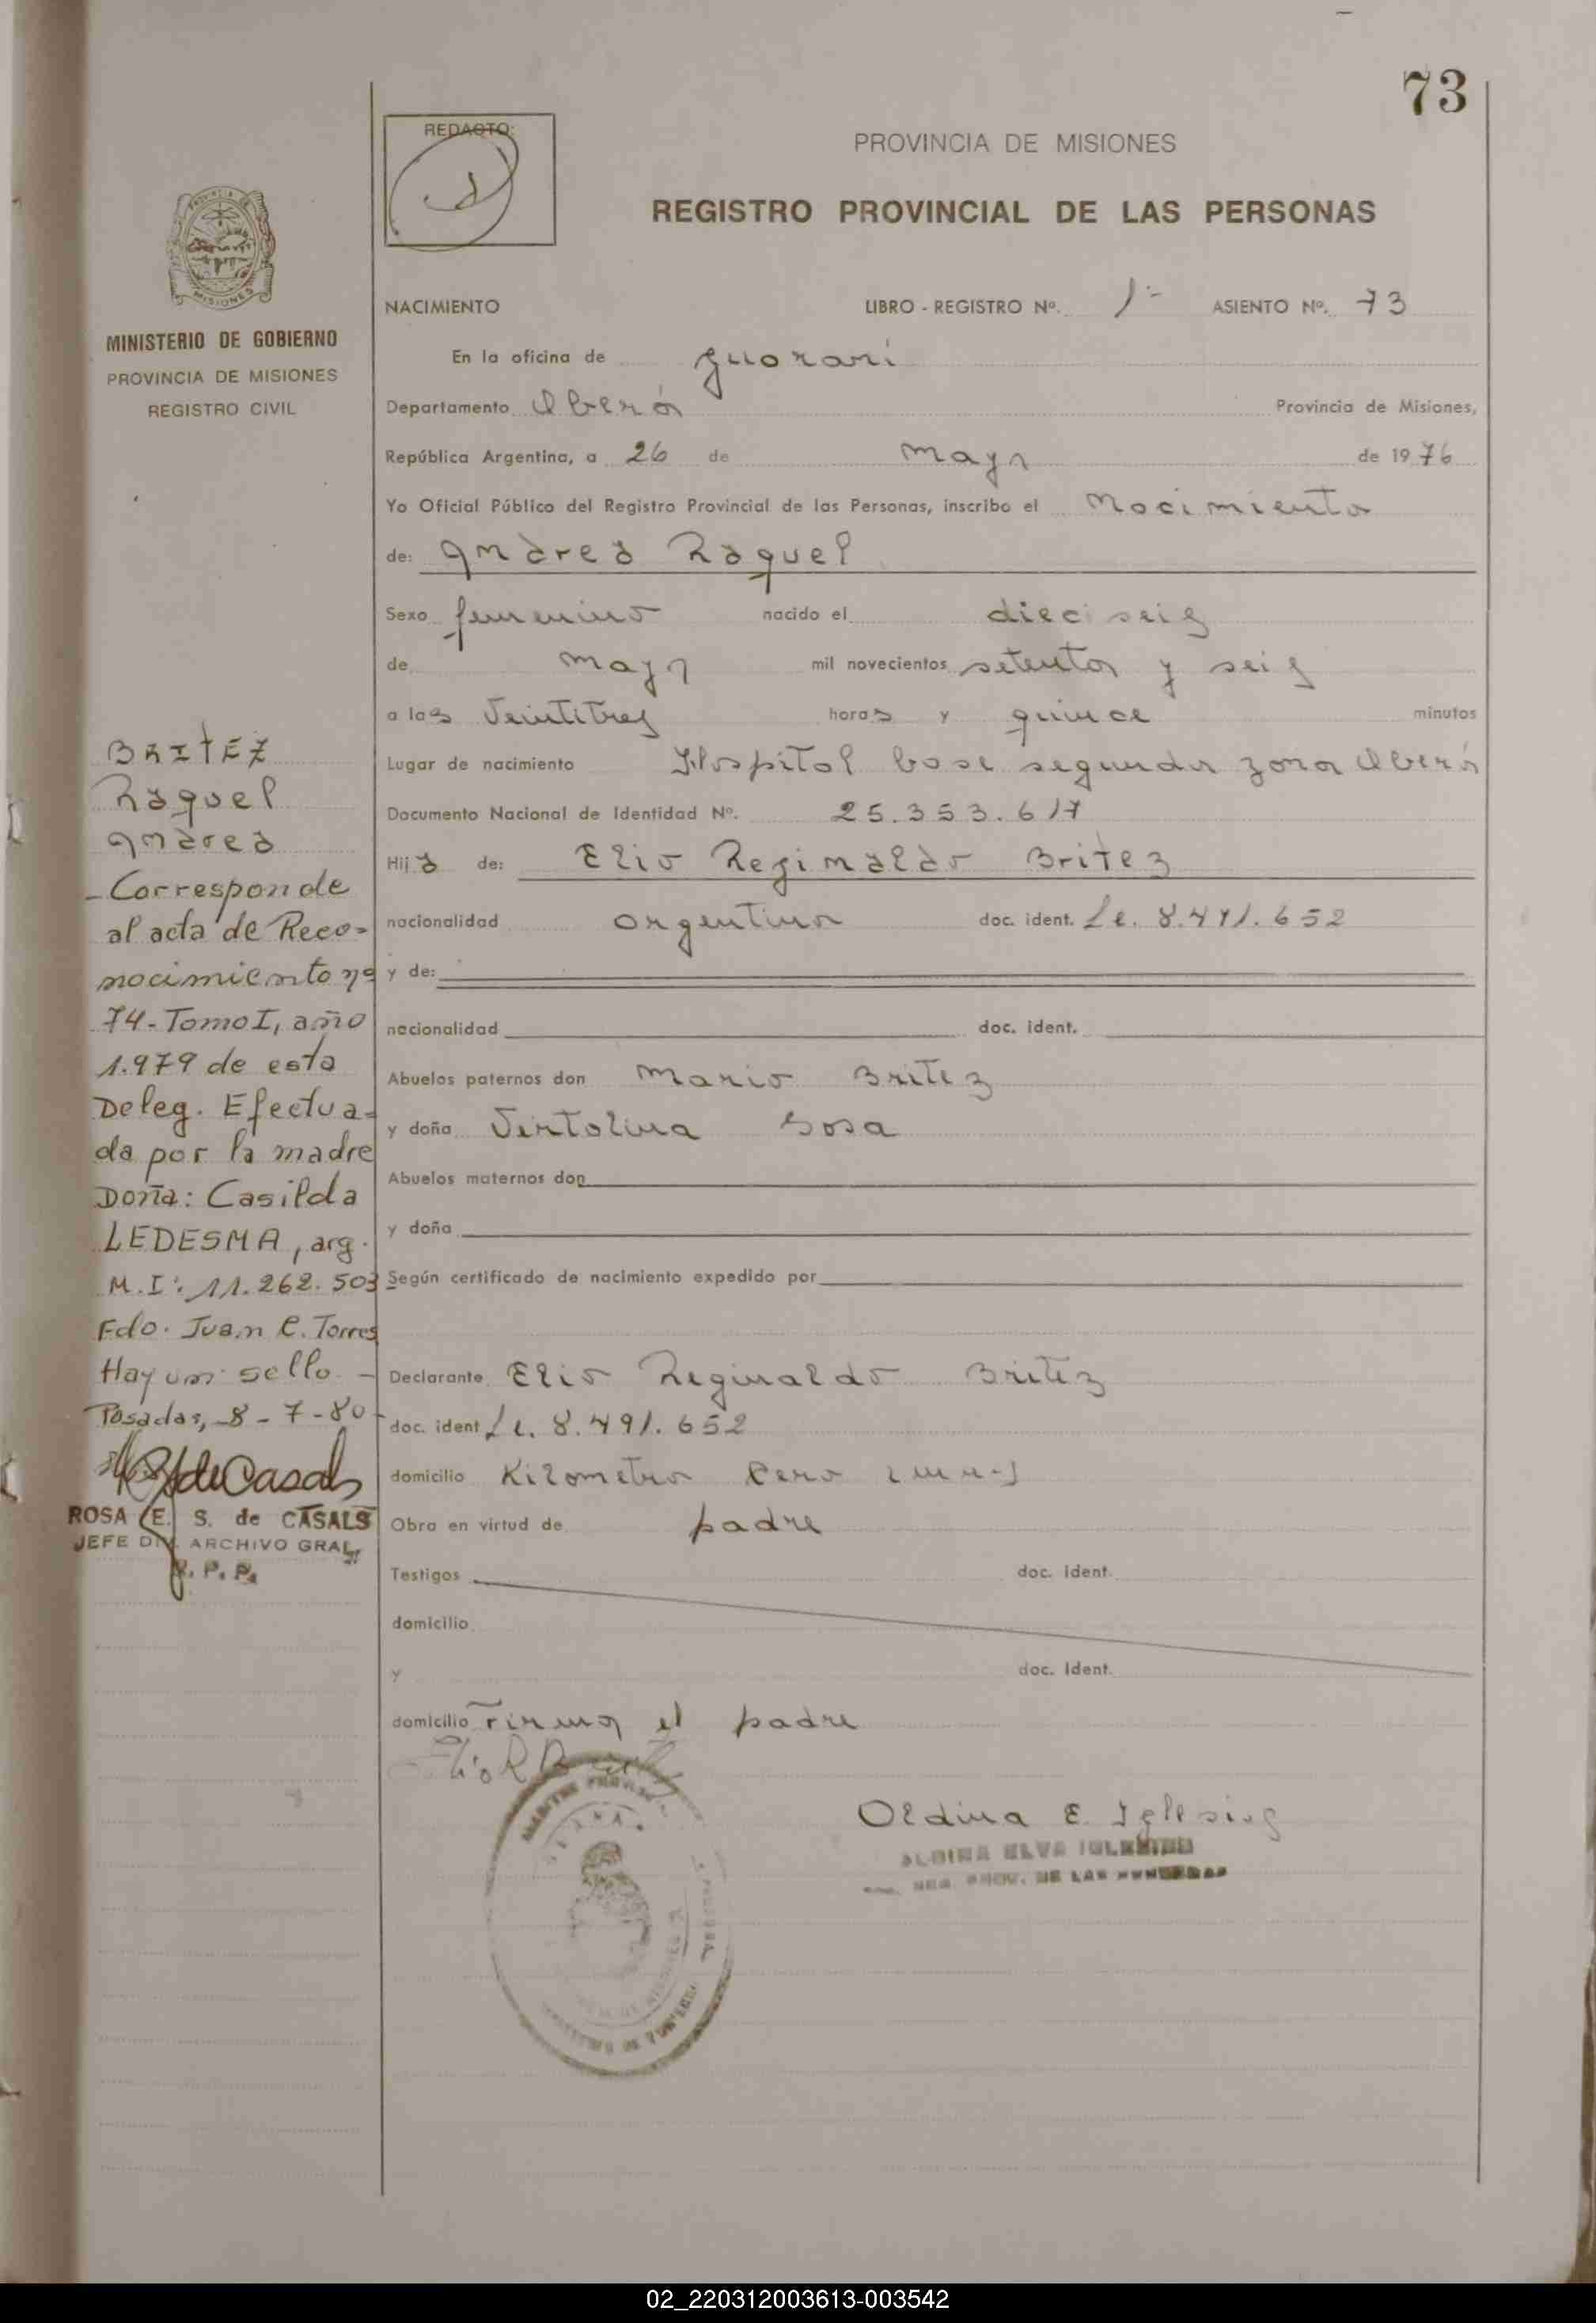 73
REDACTO:
PROVINCIA DE MISIONES
REGISTRO PROVINCIAL DE LAS PERSONAS
MINISTERIO DE GOBIERNO
PROVINCIA DE MISIONES
REGISTRO CIVIL
NACIMIENTO LIBRO - REGISTRO Nº. 1º ASIENTO Nº. 73
En la oficina de Guarani
Departamento Oberá Provincia de Misiones,
República Argentina, a 26 de mayo de 1976
Yo Oficial Público del Registro Provincial de las Personas, inscribo el Nacimiento
de: Andrea Raquel
Sexo femenino nacido el dieciseis
de mayo mil novecientos setenta y seis
a las Veintitres horas y quince minutos
Lugar de nacimiento Hospital base segunda zona Oberá
Documento Nacional de Identidad Nº. 25.353.617
Hija de: Elio Reginaldo Britez
nacionalidad argentina doc. ident. Le. 8.491.652
y de:
nacionalidad doc. ident.
Abuelos paternos don Mario Britez
y doña Sosa
Abuelos maternos don
y doña
Según certificado de nacimiento expedido por
Declarante Elio Reginaldo Britez
doc. ident Le. 8.491.652
domicilio Kilometro
Obra en virtud de padre
Testigos doc. ident.
domicilio
y doc. Ident.
domicilio Firma el padre
Oldina E. Iglesias
BRITEZ
Raquel
Andrea
- Corresponde
al acta de Reco-
nocimiento nº
74 - Tomo I, año
1.979 de esta
Deleg. Efectua-
da por la madre
Doña: Casilda
LEDESMA, arg.
M.I: 11.262.503
Fdo. Juan C. Torres
Hay un sello. -
Posadas, 8 - 7 - 80 -
ROSA E. S. de CASALS
JEFE DIV. ARCHIVO GRAL.
R. P. P.
02_220312003613-003542